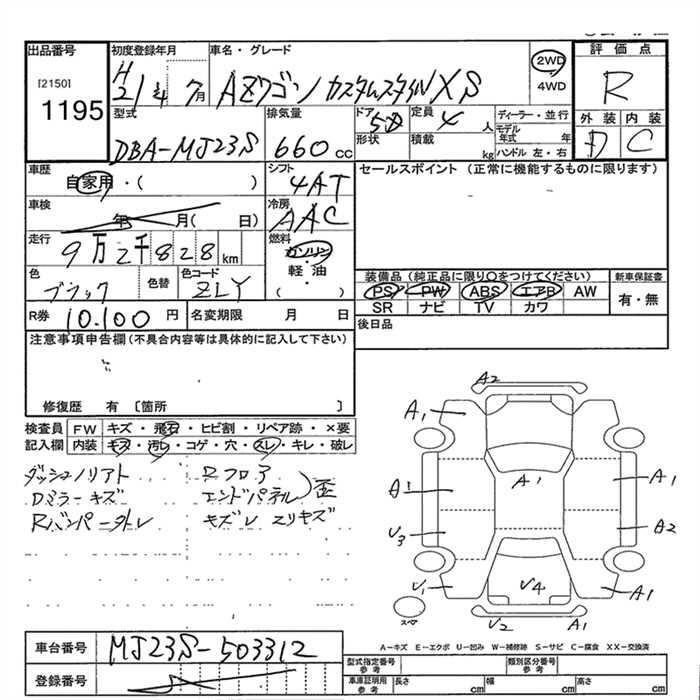 出品番号 初度登録年月 車名・グレード 評価点
[2150] 1195
H21年 7月 AZワゴン カスタムスタイルXS 2WD 4WD R
型式 排気量 ドア 定員 ディーラー・並行 外装 内装
DBA-MJ23S 660cc 5D 4人 モデル年式 年 D C
形状 積載 kg ハンドル 左・右
車歴 シフト セールスポイント(正常に機能するものに限ります)
自家用・( ) 4AT
車検 冷房
年 月( 日) AAC
走行 燃料
9万2千828km ガソリン・軽油
色 色替 色コード ( )
ブラック ZLY
装備品(純正品に限り○をつけてください) 新車保証書
PS PW ABS エアB AW 有・無
SR ナビ TV カワ
R券 10.100円 名変期限 月 日
後日品
注意事項申告欄(不具合内容等は具体的に記入して下さい)
修復歴 有 〔箇所 〕
検査員 FW キズ・飛石・ヒビ割・リペア跡・×要
記入欄 内装 キズ・汚レ・コゲ・穴・スレ・キレ・破レ
ダッシュノリアト Rフロア
Dミラーキズ エンドパネル)歪
Rバンパー外レ キズレ エリキズ
A2
A1
A1
A1
A1
A2
U3
U1
U4
A1
U2
A1
スペア
A-キズ E-エクボ U-凹み W-補修跡 S-サビ C-腐食 XX-交換済
車台番号 MJ23S-503312
登録番号
型式指定番号 参考 類別区分番号 参考
車庫証明用 参考 長さ cm 幅 cm 高さ cm